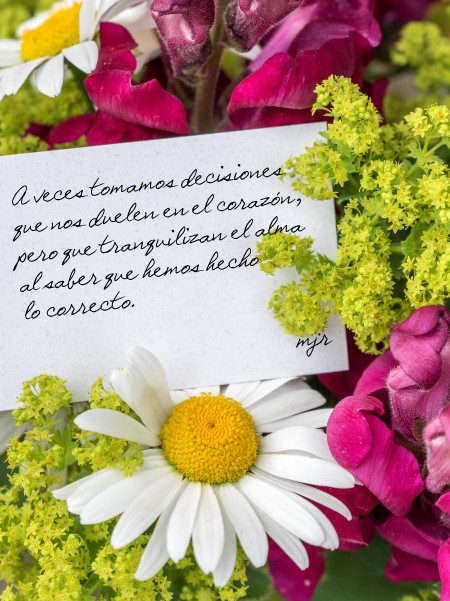 A veces tomamos decisiones
que nos duelen en el corazón,
pero que tranquilizan el alma
al saber que hemos hecho
lo correcto.
mjr